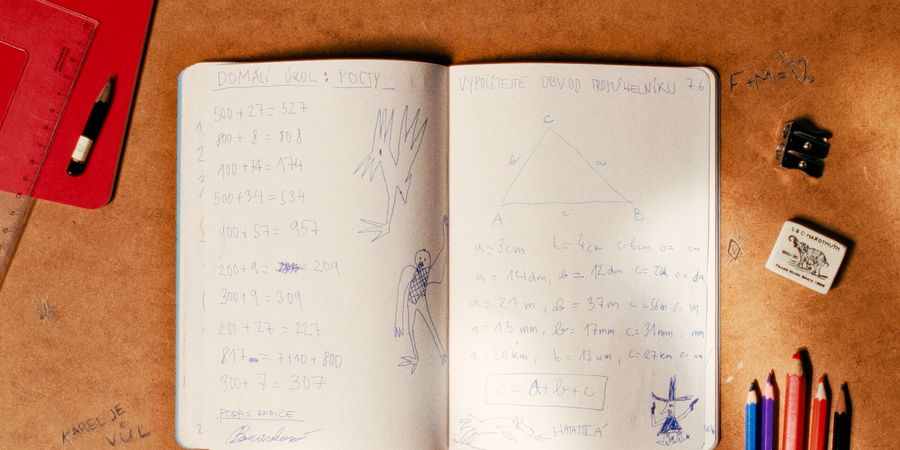 DOMÁCÍ ÚKOL: POČTY
500+27=527
800+8=808
100+74=174
500+34=534
900+57=957
200+9= 209
300+9=309
200+27=227
817 = 7+10+800
300+7=307
PODPIS RODIČE
VYPOČÍTEJTE OBVOD TROJÚHELNÍKU 76
C
b a
A c B
a=3cm b=4cm c=6cm o= cm
a=14dm, b=12dm c= o= dm
a=21m, b=37m c=56m o= m
a=15mm, b=17mm c=31mm = mm
a=20km; b=13km, c=27km o= m
o=a+b+c
F+M=
L & C HARDTMUTH
300/30
KAREL JE
VŮL